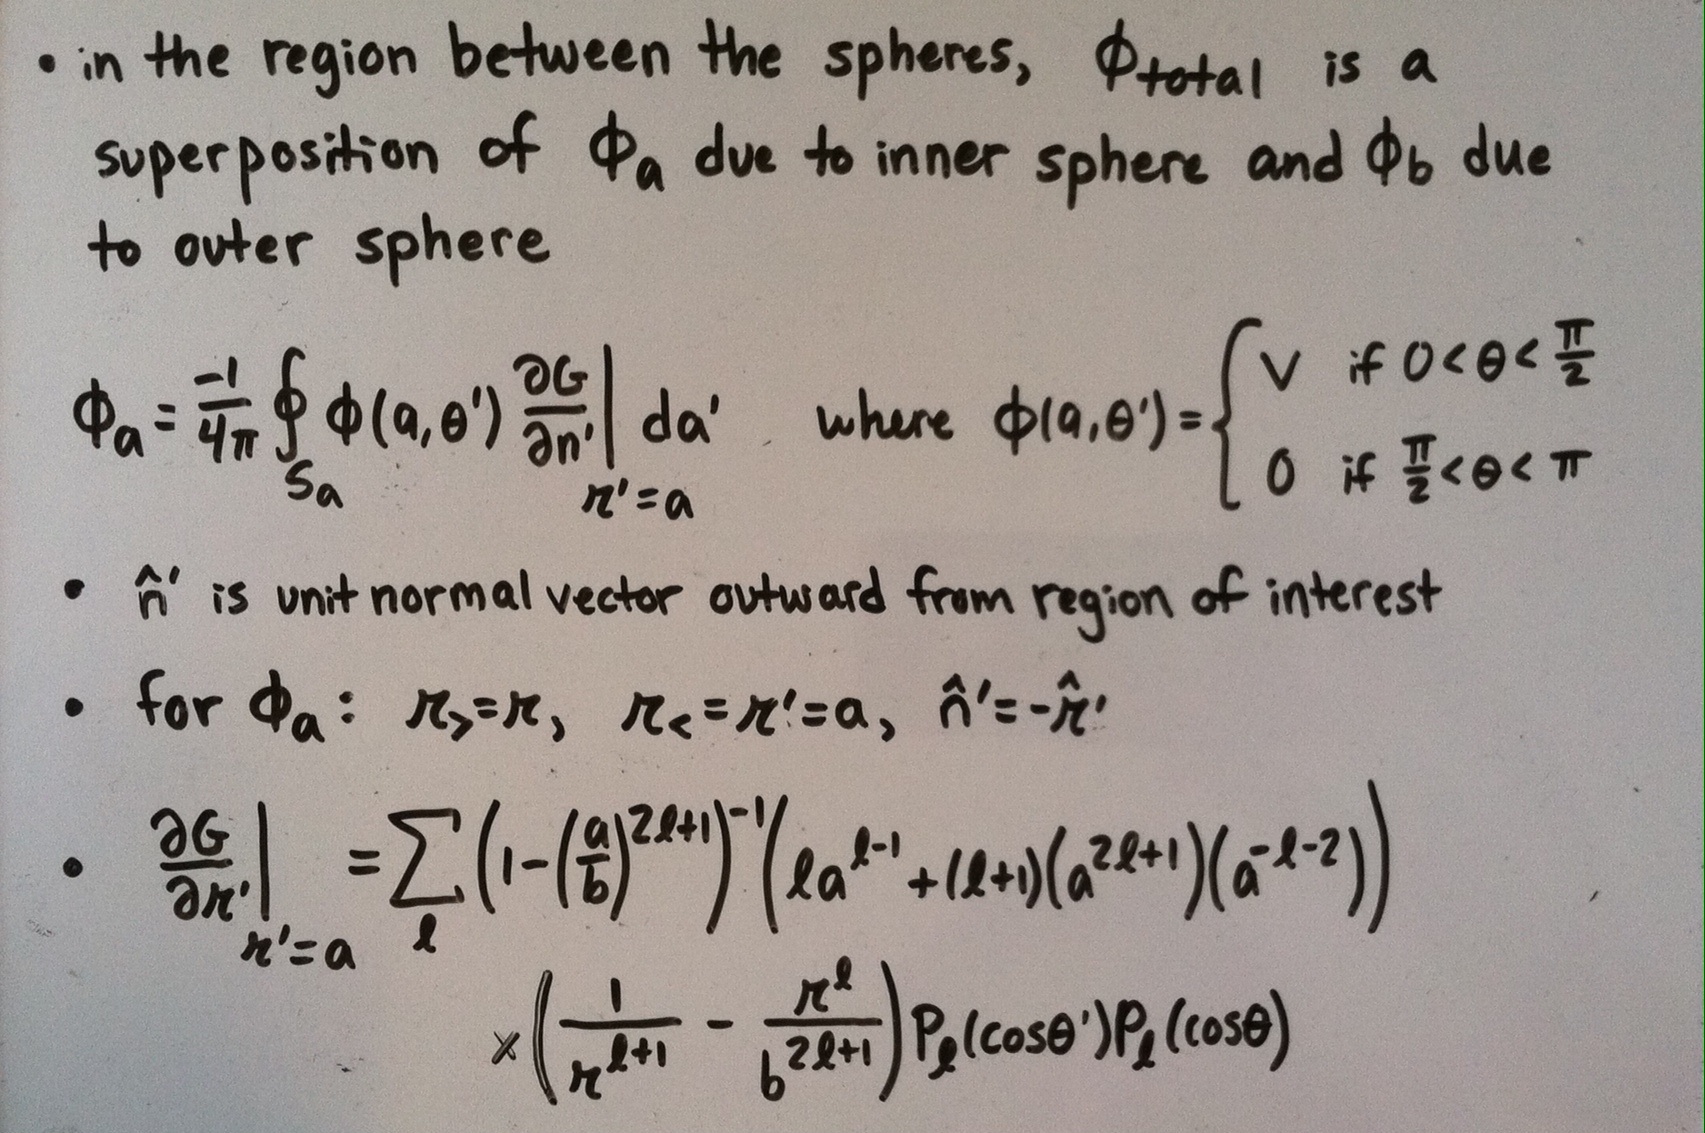 • in the region between the spheres, Φ_total is a
superposition of Φ_a due to inner sphere and Φ_b due
to outer sphere
Φ_a = -1/4π ∮_{S_a} Φ(a,θ') ∂G/∂n' |_{r'=a} da' where Φ(a,θ') = { V if 0<θ<π/2
0 if π/2<θ<π
• n̂' is unit normal vector outward from region of interest
• for Φ_a: r_> = r, r_< = r' = a, n̂' = -r̂'
• ∂G/∂r' |_{r'=a} = Σ_ℓ (1-(a/b)^{2ℓ+1})^{-1} (ℓa^{ℓ-1} + (ℓ+1)(a^{2ℓ+1})(a^{-ℓ-2}))
× (1/r^{ℓ+1} - r^ℓ/b^{2ℓ+1}) P_ℓ(cosθ')P_ℓ(cosθ)